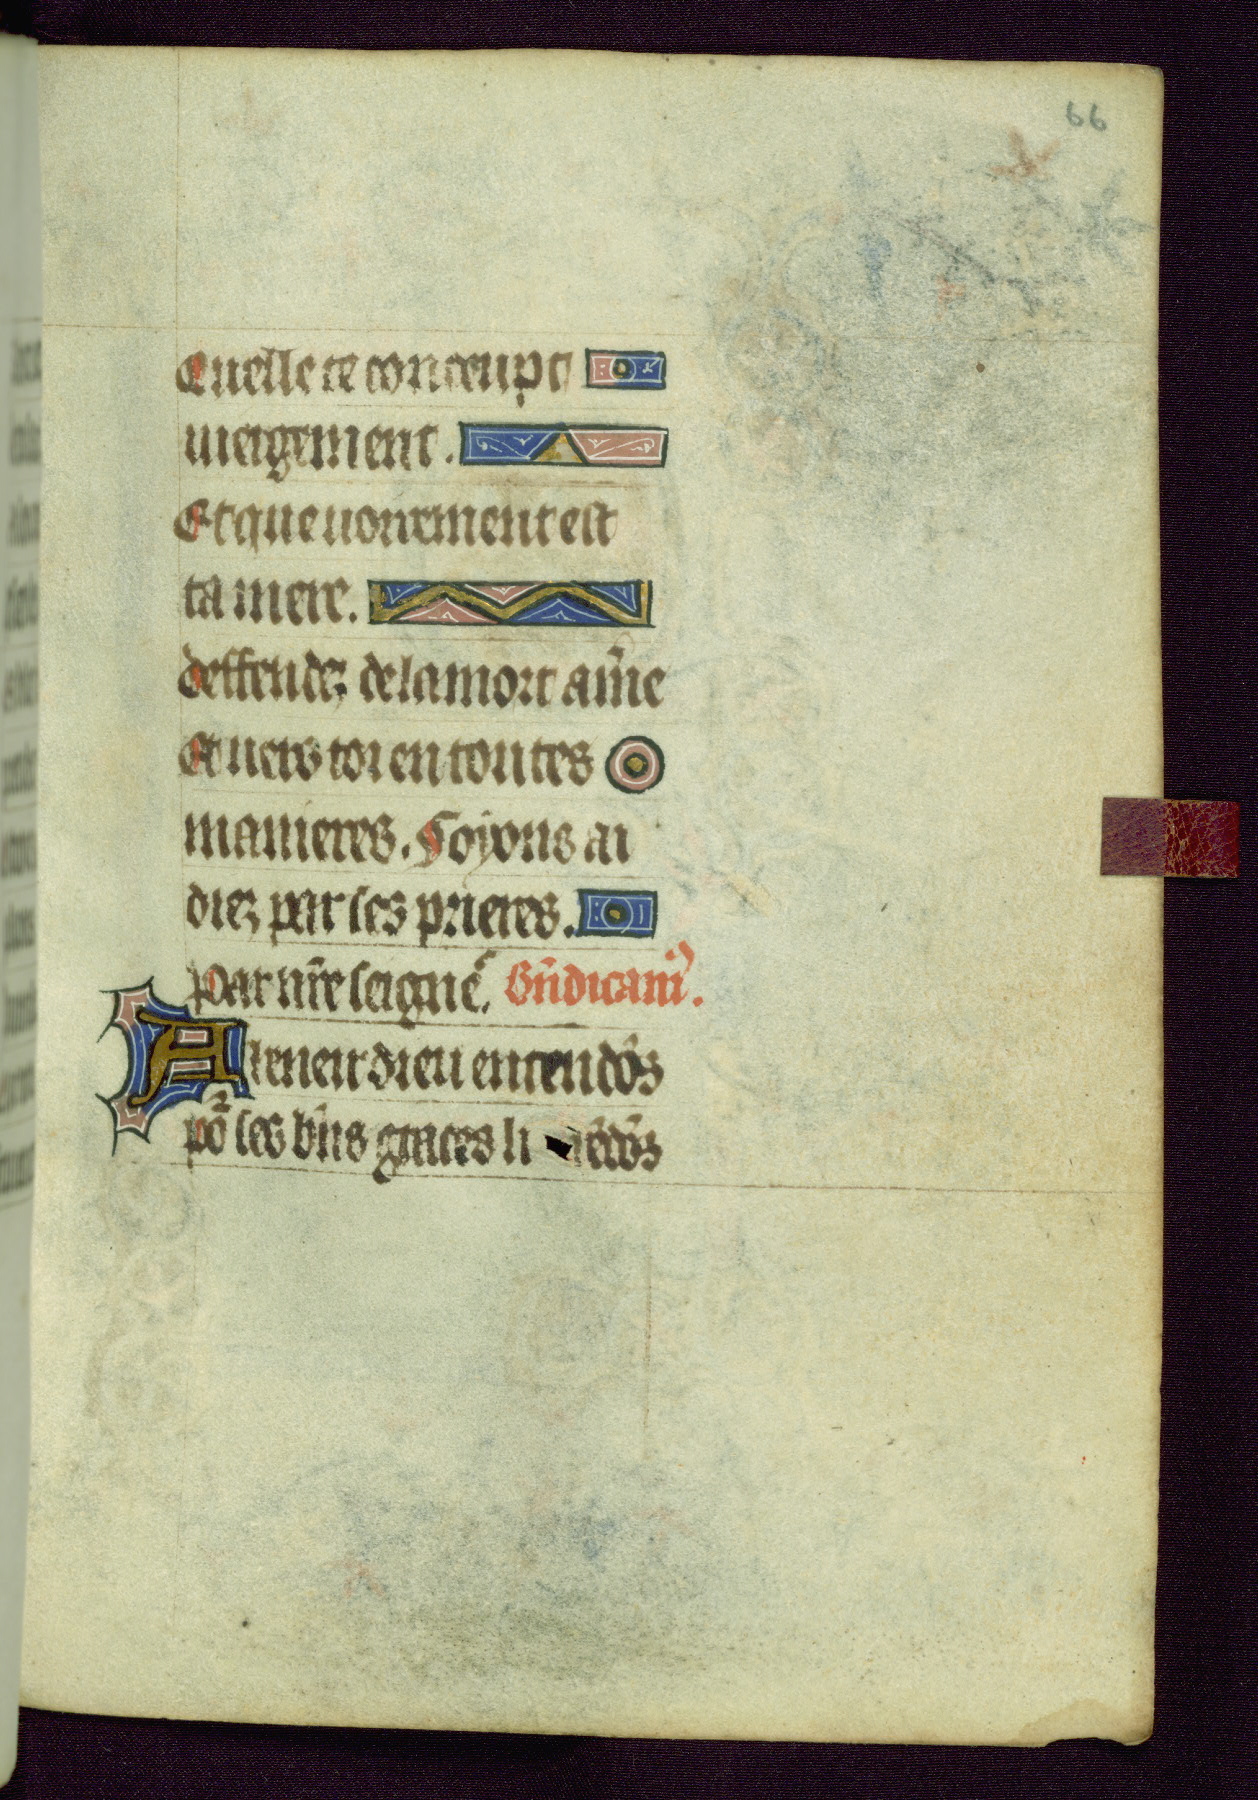 66
Quelle te conceupt
uiergement.
Et que uoirement est
ta mere.
deffendez de la mort am̄e
Et uers toi en toutes
manieres. Soyons ai
diez par ses prieres.
Par nr̄e seigne᷑. Bn̄dicam᷑.
A ieneir dieu entendōs
pō ses bn̄s graces li